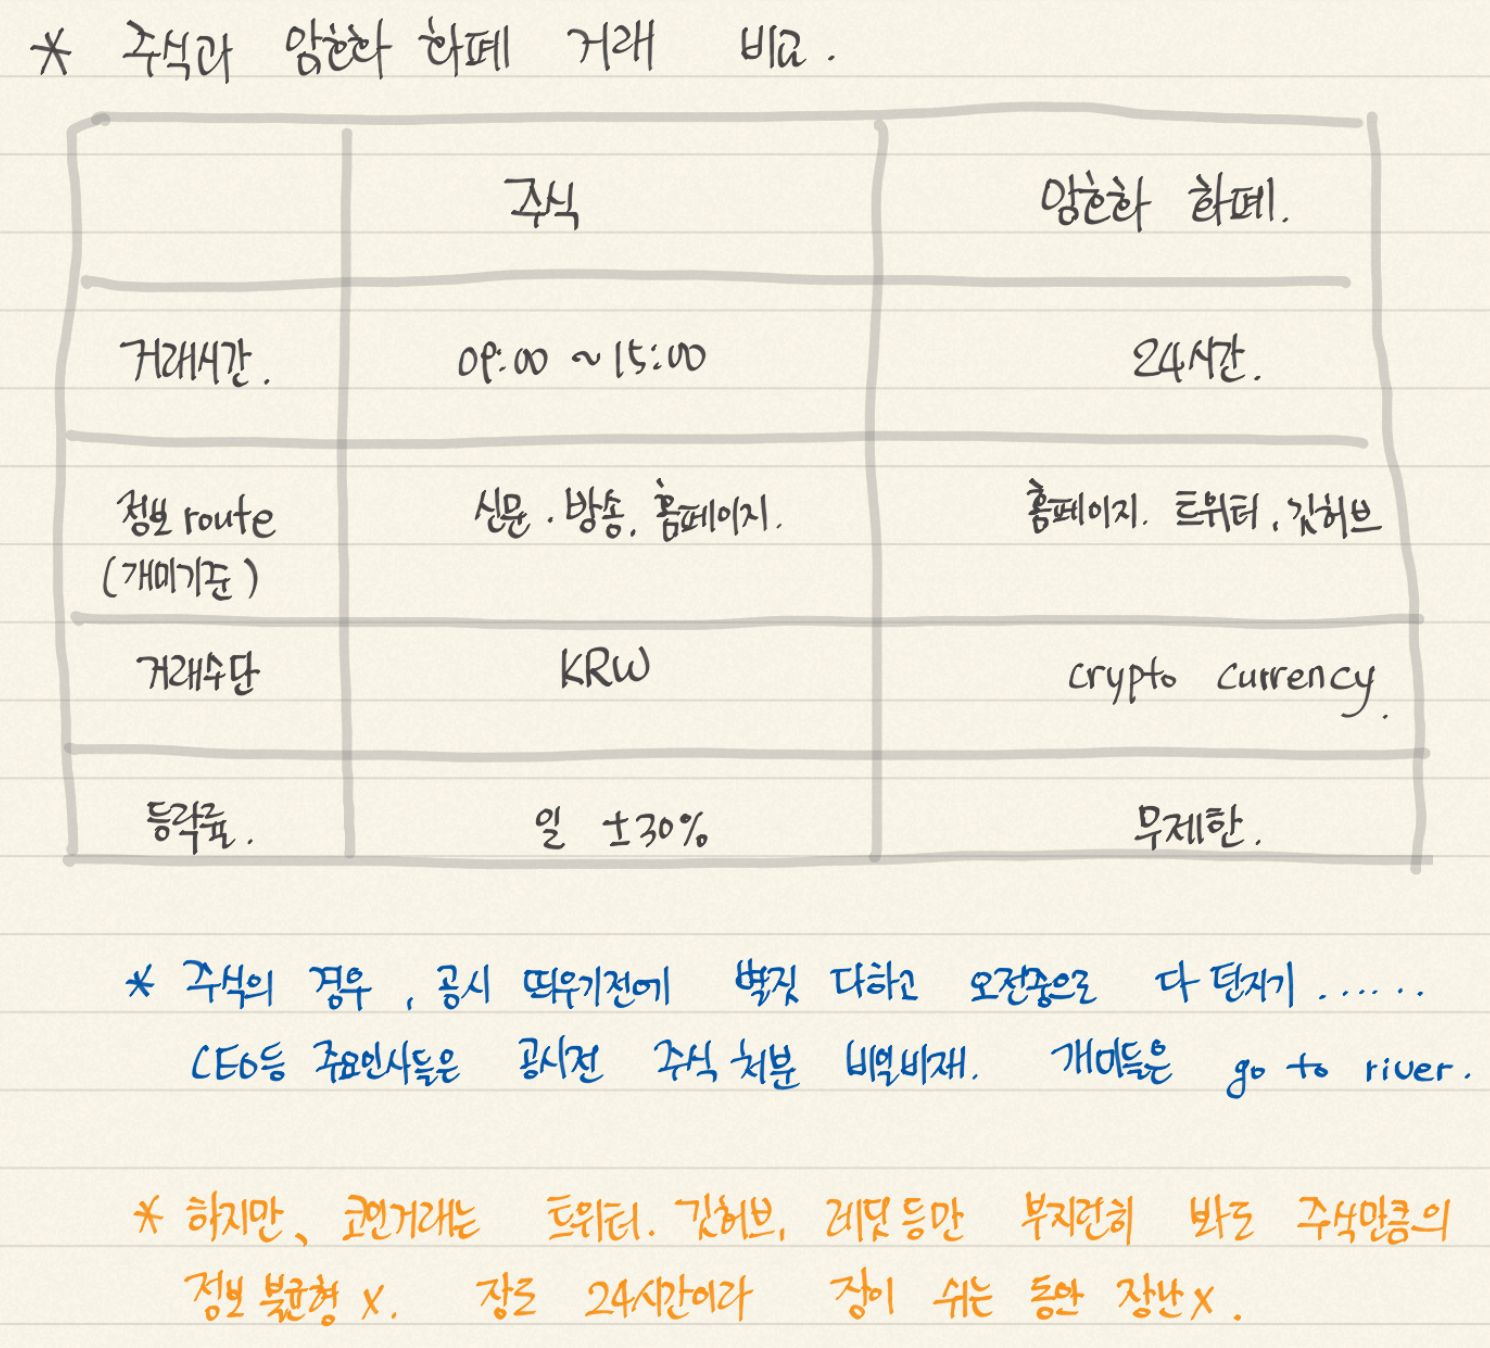 * 주식과 암호화 화폐 거래 비교.
주식 암호화 화폐.
거래시간. 09:00 ~ 15:00 24시간.
정보 route 신문. 방송. 홈페이지. 홈페이지. 트위터, 깃허브
(개미기준)
거래수단 KRW crypto currency.
등락률. 일 ±30% 무제한.
* 주식의 경우, 공시 띄우기전에 별짓 다하고 오전중으로 다 던지기......
CEO등 주요인사들은 공시전 주식 처분 비일비재. 개미들은 go to river.
* 하지만, 코인거래는 트위터. 깃허브, 레딧 등만 부지런히 봐도 주식만큼의
정보 불균형 x. 장도 24시간이라 장이 쉬는 동안 장난 x.